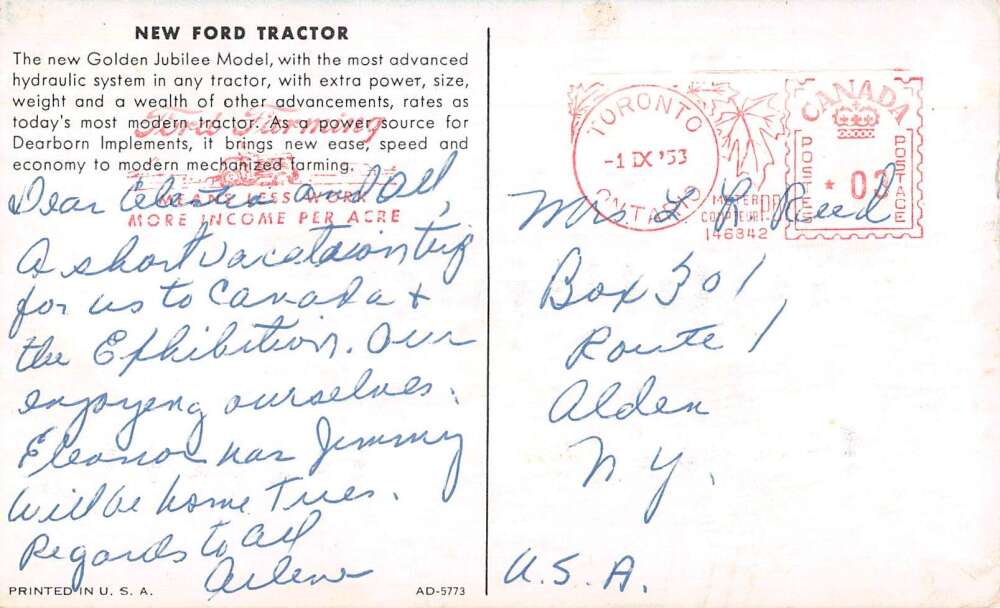 NEW FORD TRACTOR
The new Golden Jubilee Model, with the most advanced
hydraulic system in any tractor, with extra power, size,
weight and a wealth of other advancements, rates as
today's most modern tractor. As a power source for
Dearborn Implements, it brings new ease, speed and
economy to modern mechanized farming.
Ford Farming
MEANS LESS WORK
MORE INCOME PER ACRE
Dear and All,
A short vacataion trip
for us to Canada +
the Exhibition. Our
enjoying ourselves.
Eleanor has Jimmy
Will be home Tues.
Regards to all
Arlene
PRINTED IN U. S. A.
AD-5773
TORONTO
-1 IX '53
ONTARIO
CANADA
POSTES
POSTAGE
03
METER
COMPTEUR
146342
Mrs L Reed
Box 301,
Route 1
Alden
N.Y.
U.S.A.